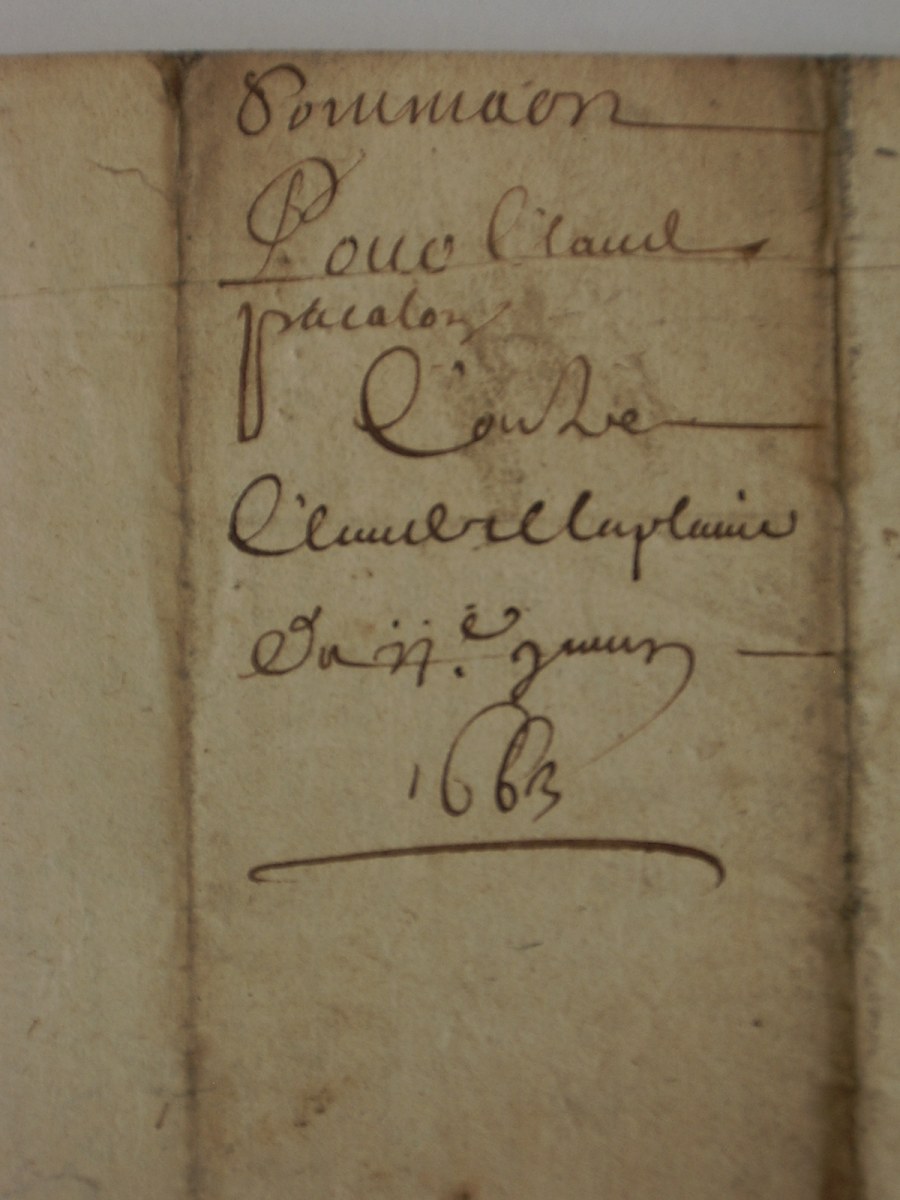 Sommaon
Pour Claud
pacalon
Contre
Claude Laplaine
Du ij.e juin
1663